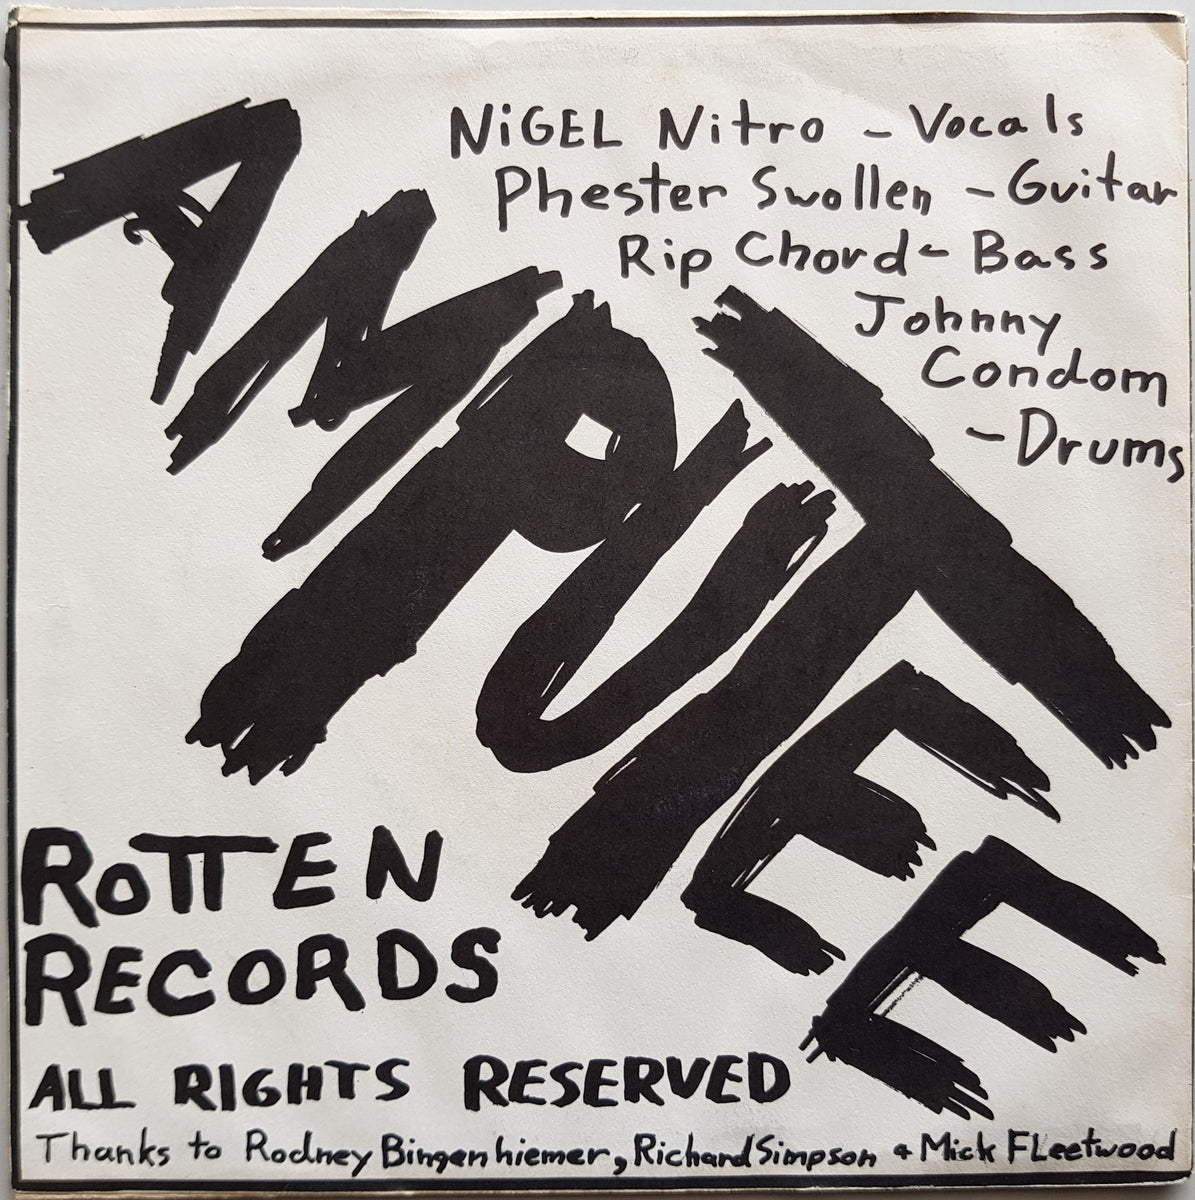 NiGEL Nitro - Vocals
Phester Swollen - Guitar
Rip Chord - Bass
Johnny
Condom
- Drums
AMPUTEE
ROTTEN
RECORDS
ALL RIGHTS RESERVED
Thanks to Rodney Bingenhiemer, Richard Simpson & Mick FLeetwood